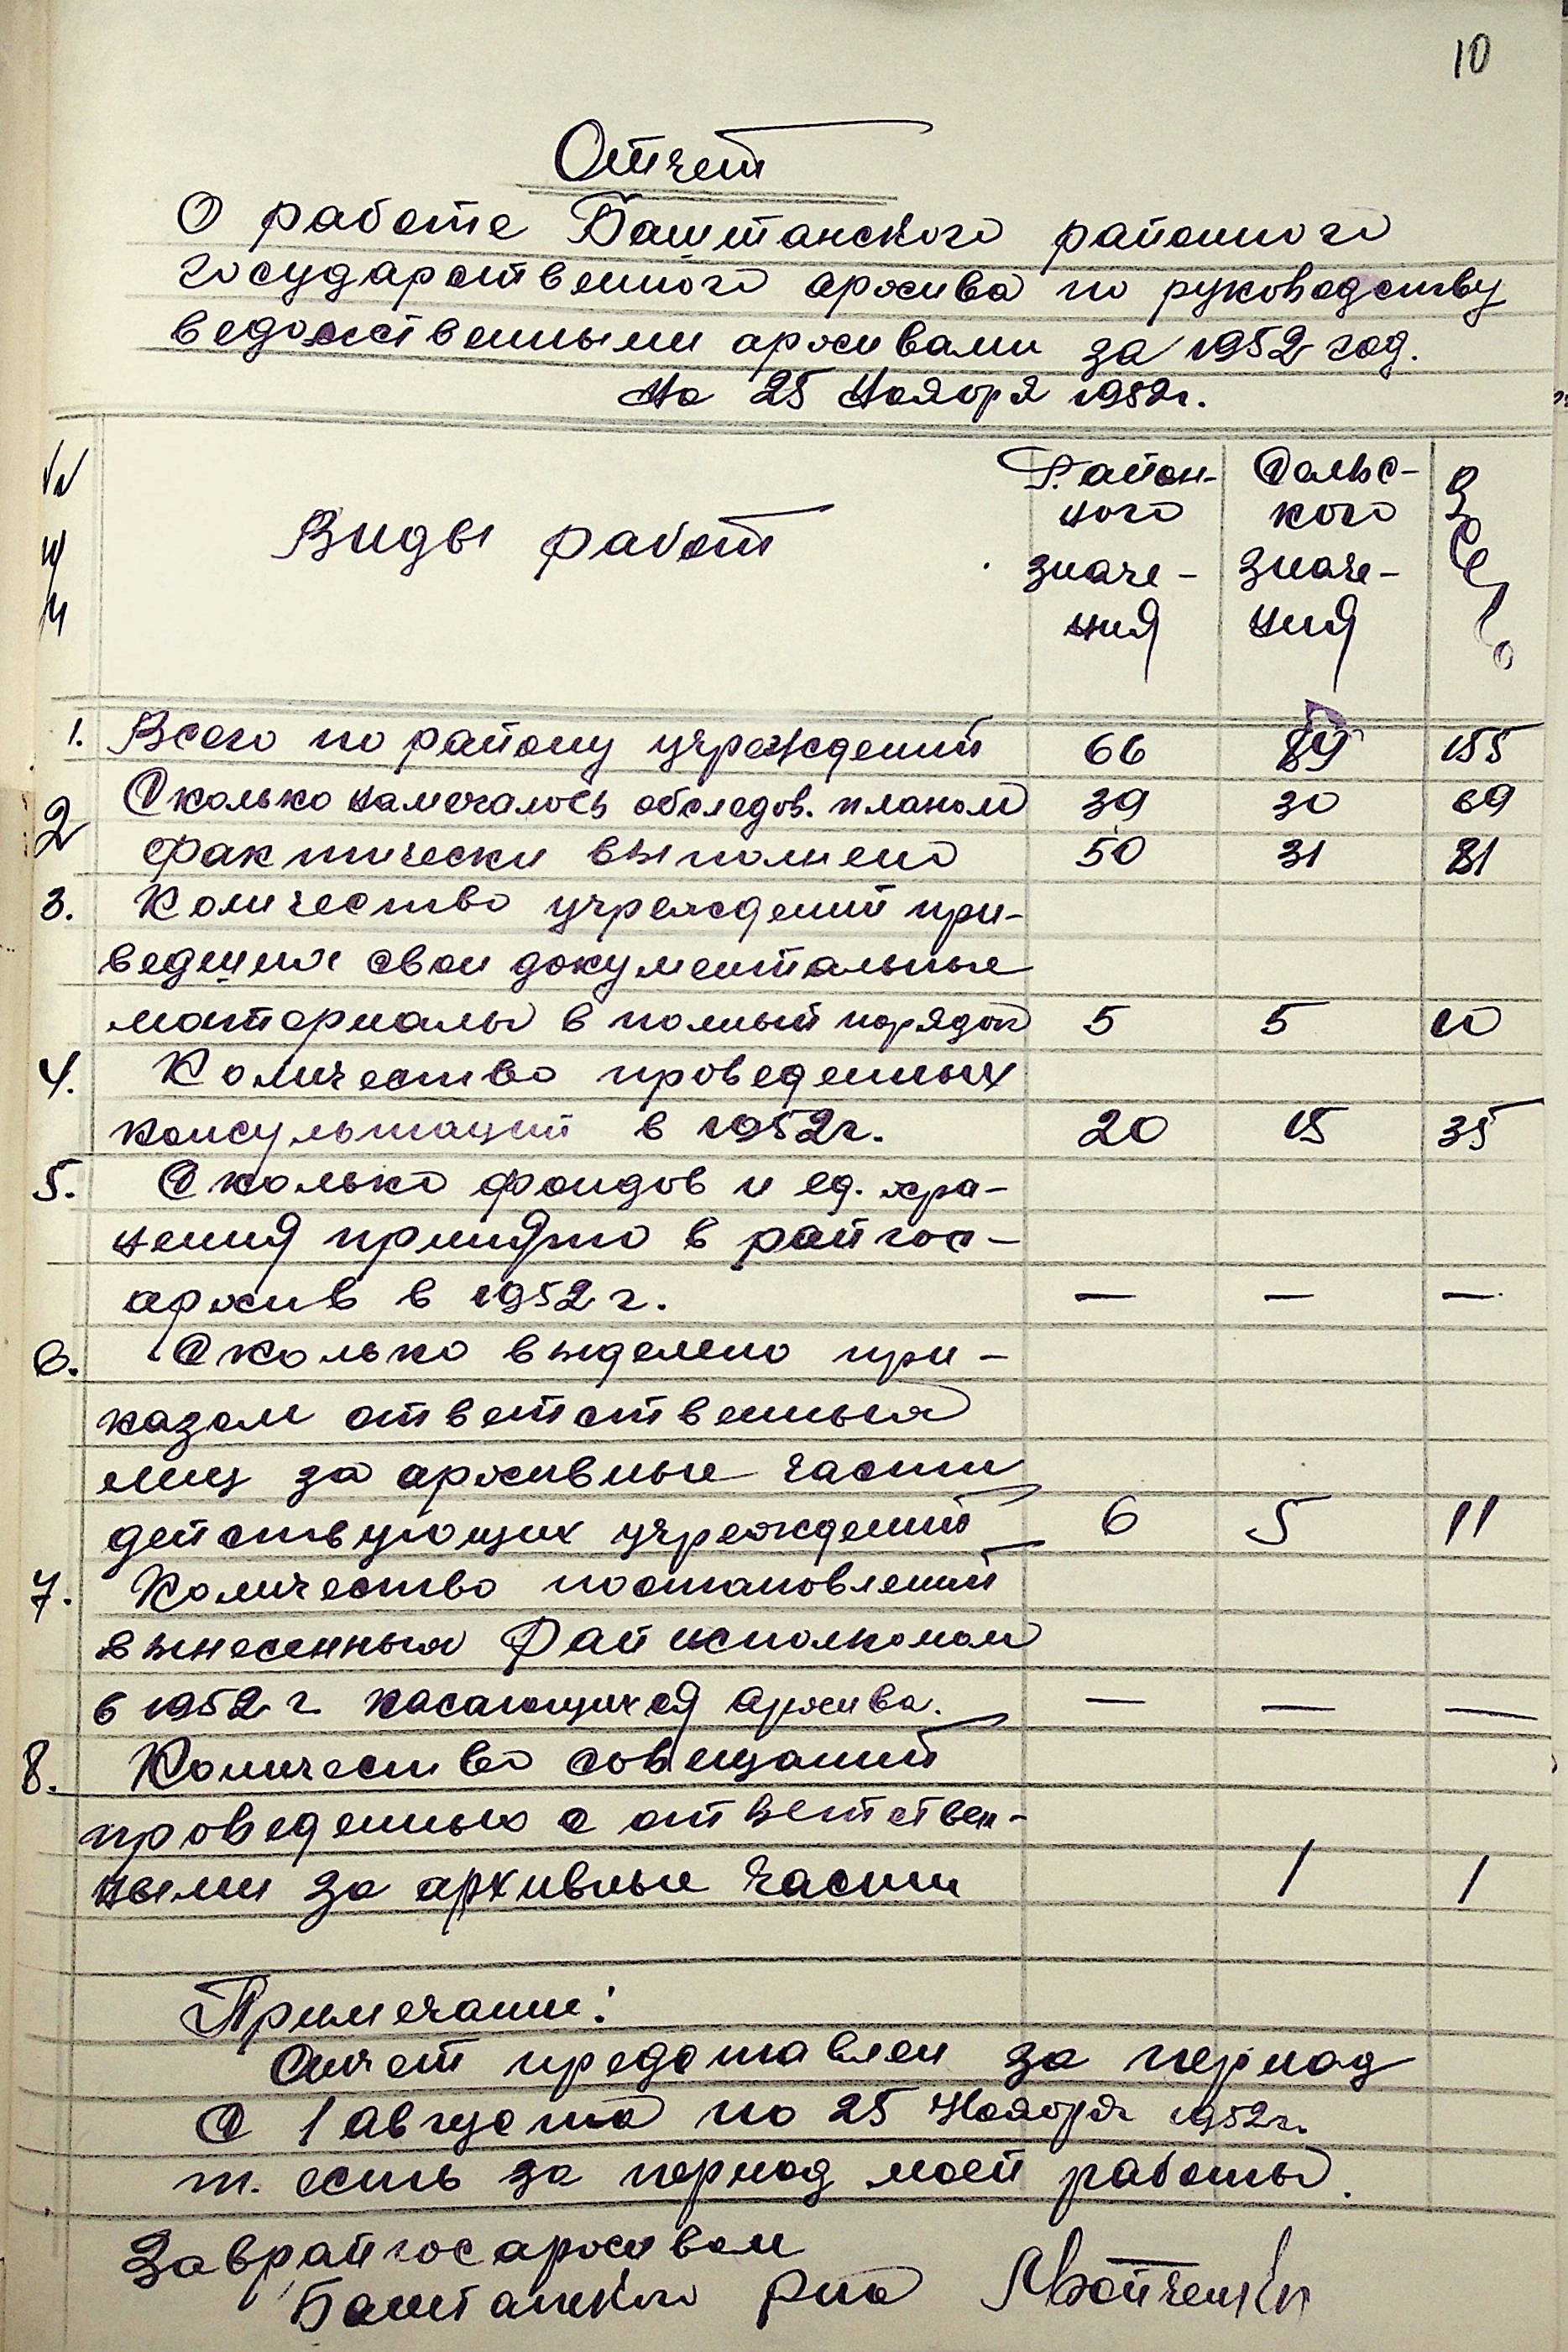 10
Отчет
О работе Баштанского районного
государственного архива по руководству
ведомственными архивами за 1952 год.
На 25 Ноября 1952г.
№№ Виды работ Район- Сельс- Всего
п/п ного кого
значе- значе-
ния ния
1. Всего по району учреждений 66 89 155
2 Сколько намечалось обследов. планом 39 30 69
фактически выполнено 50 31 81
3. Количество учреждений при-
ведшия свои документальные
материалы в полный порядок 5 5 10
4. Количество проведенных
консультаций в 1952г. 20 15 35
5. Сколько фондов и ед. хра-
нения принято в райгос-
архив в 1952 г. — — —
6. Сколько выделено при-
казом ответственных
лиц за архивные части
действующих учреждений 6 5 11
7. Количество постановлений
вынесенных Райисполкомом
в 1952 г. касающихся архива. — — —
8. Количество совещаний
проведенных с ответствен-
ными за архивные части 1 1
Примечание:
Отчет представлен за период
С 1 августа по 25 Ноября 1952г.
т. есть за период моей работы.
Заврайгосархивом
Баштанского рио